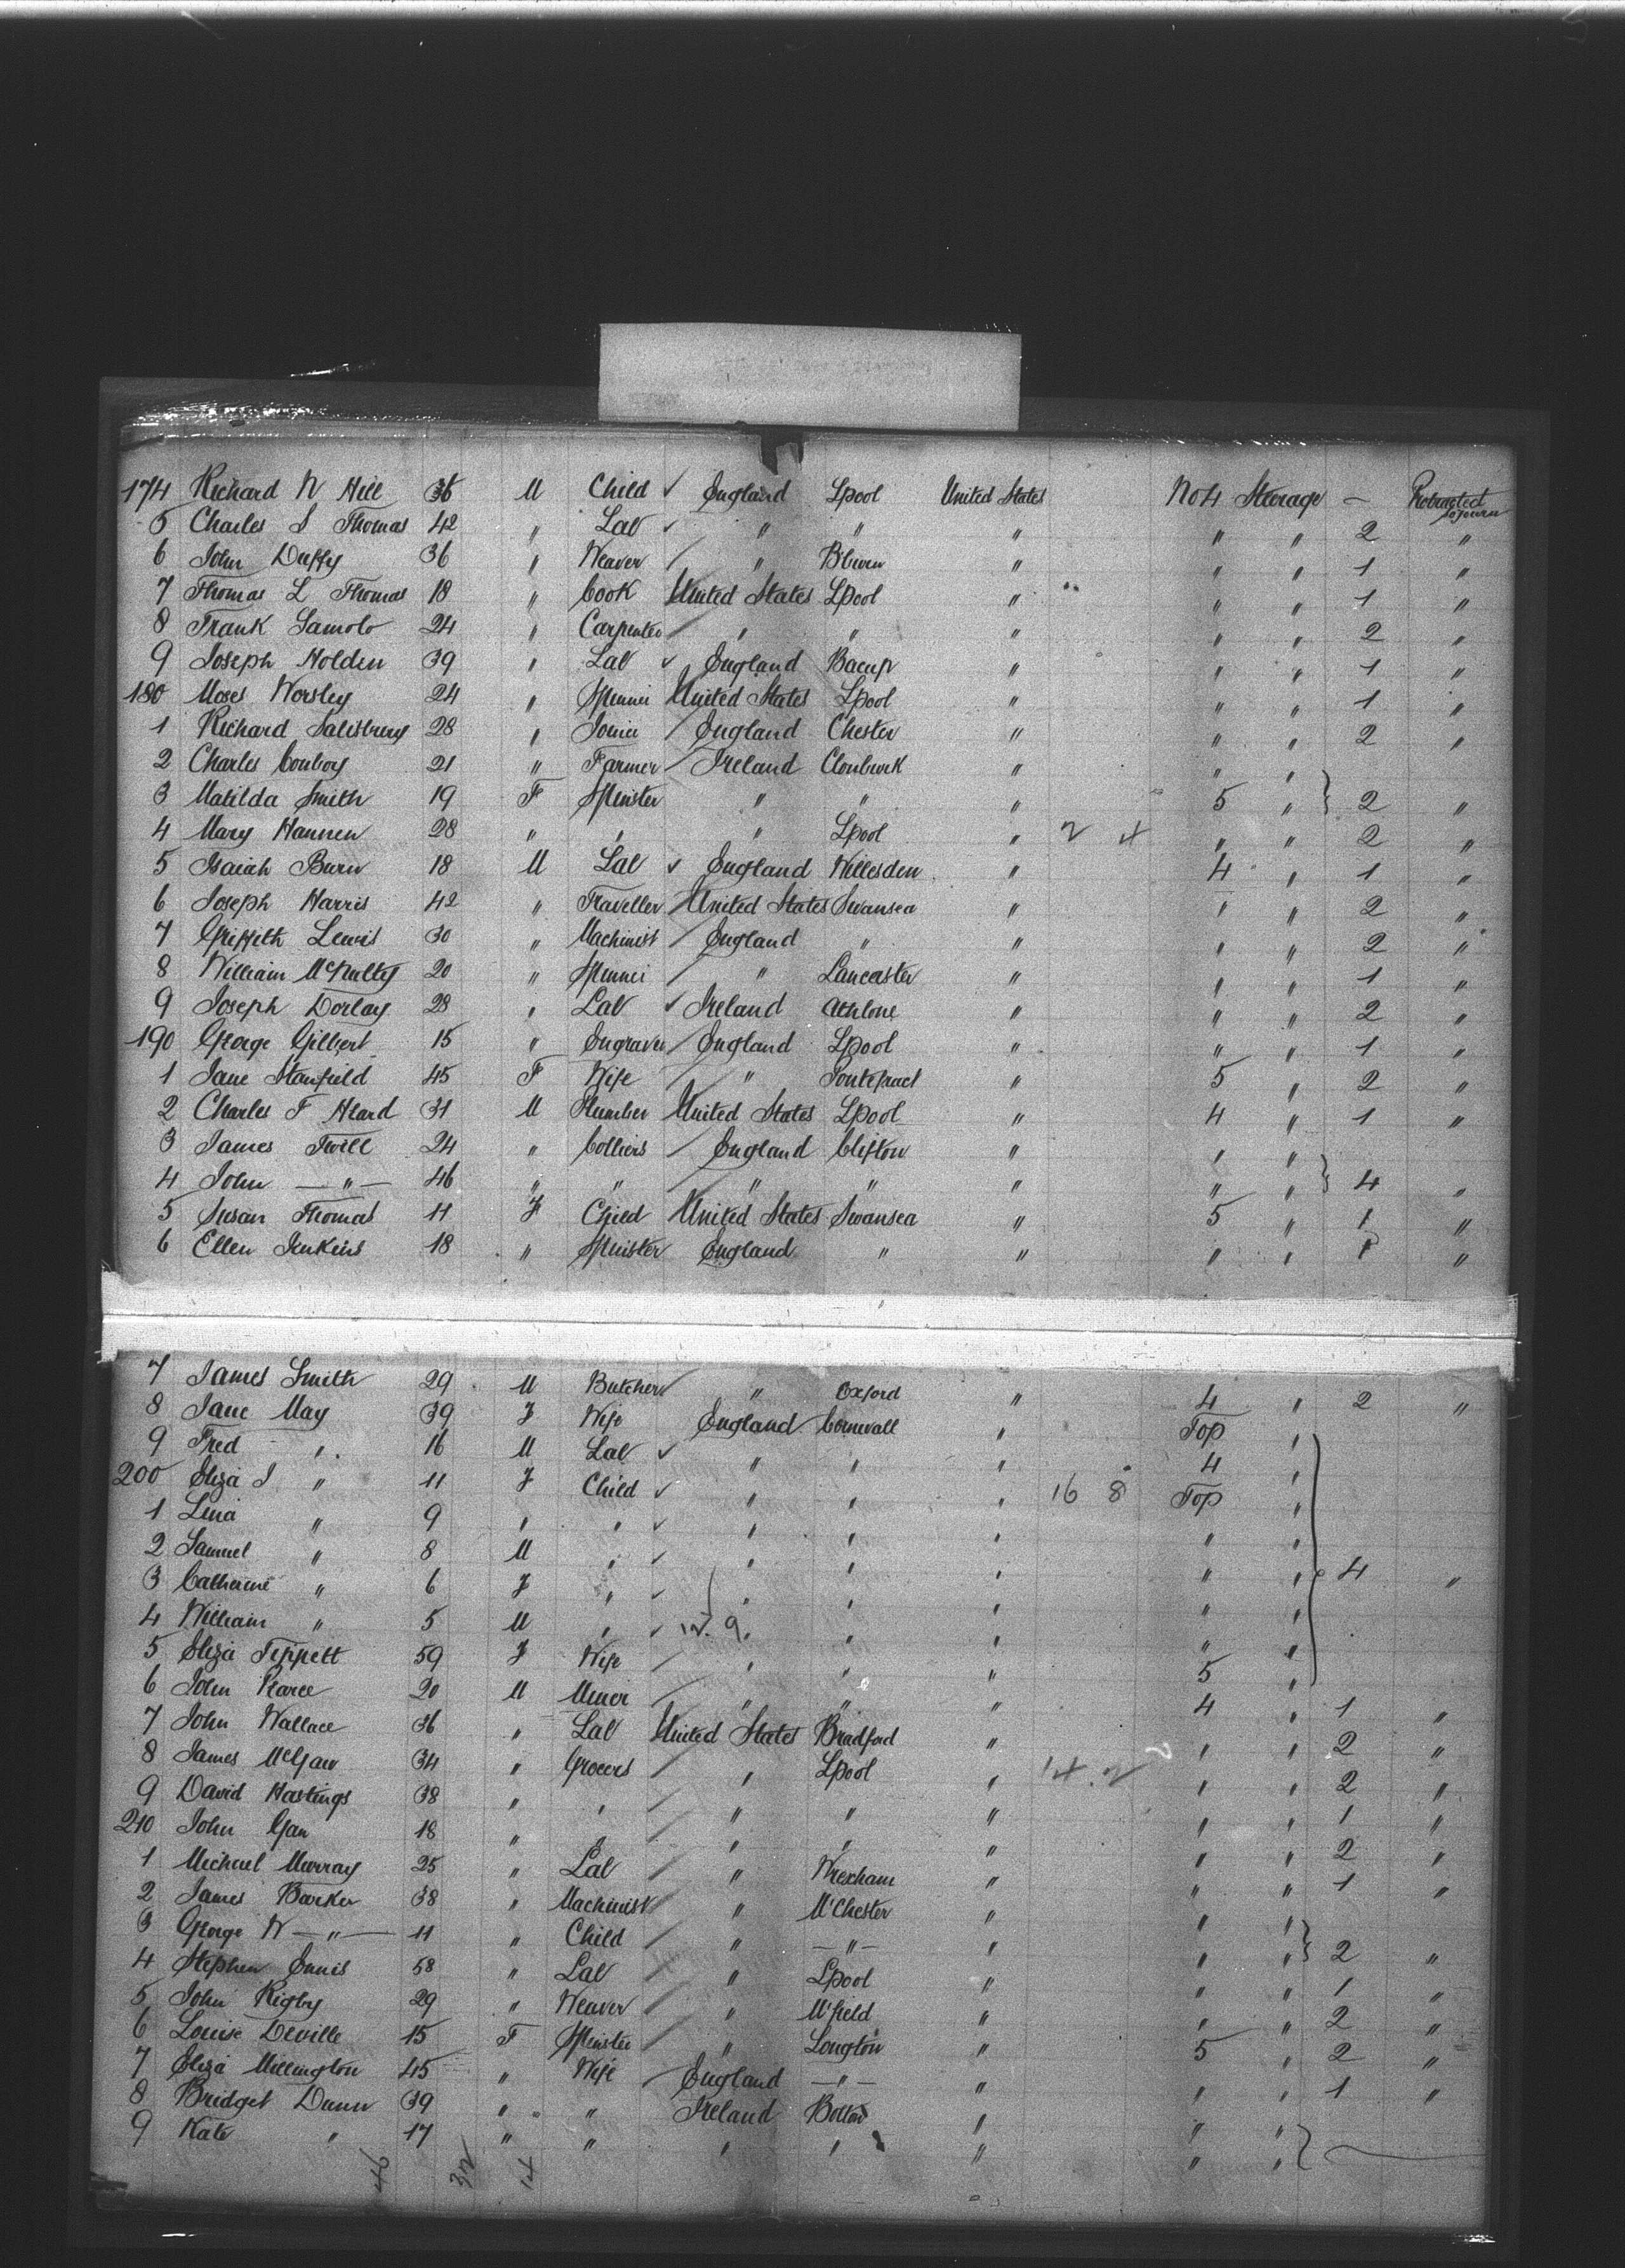 174 Richard W Hill 36 M Child ✓ England Lpool United States No 4 Steerage — Protracted sojourn
5 Charles S Thomas 42 " Lab ✓ " " " " " 2 "
6 John Duffy 36 " Weaver / " B'burn " " " 1 "
7 Thomas L Thomas 18 " Cook United States Lpool " " " 1 "
8 Frank 24 " Carpenter / " " " " " 2 "
9 Joseph Holden 39 " Lab ✓ England Bacup " " " 1 "
180 Moses Worsley 24 " Spinner United States Lpool " " " 1 "
1 Richard Salisbury 28 " Joiner / England Chester " " " 2 "
2 Charles Conboy 21 " Farmer / Ireland " " "
3 Matilda Smith 19 F Spinster " " " 5 " } 2 "
4 Mary Hannen 28 " " " Lpool " 2 4 " " 2 "
5 Isaiah Burn 18 M Lab ✓ England Willesden " 4 " 1 "
6 Joseph Harris 42 " Traveller / United States Swansea " " " 2 "
7 Griffith Lewis 30 " Machinist / England " " " " 2 "
8 William McNulty 20 " Spinner / " Lancaster " " " 1 "
9 Joseph Dorlay 28 " Lab ✓ Ireland Athlone " " " 2 "
190 George Gilbert 15 " Engraver / England Lpool " " " 1 "
1 Jane Stanfield 45 F Wife / " Pontefract " 5 " 2 "
2 Charles F Heard 31 M Plumber United States Lpool " 4 " 1 "
3 James Twill 24 " Colliers / England Clifton " " "
4 John — " — 46 " " / " " " " " } 4 "
5 Susan Thomas 11 F Child United States Swansea " 5 " 1 "
6 Ellen Jenkins 18 " Spinster England " " " " 1 "
7 James Smith 29 M Butcher ✓ " Oxford " 4 " 2 "
8 Jane May 39 F Wife England Cornwall " Top "
9 Fred " 16 M Lab ✓ " " " 4 "
200 Eliza J " 11 F Child ✓ " " " 16 8 Top "
1 Lena " 9 " " ✓ " " " " "
2 Samuel " 8 M " ✓ " " " " " 4 "
3 Catherine " 6 F " ✓ " " " " "
4 William " 5 M " ✓ 12.9 " " " " "
5 Eliza Tippett 59 F Wife / " " " 5 "
6 John Pearce 20 M Miner / " " " 4 " 1 "
7 John Wallace 36 " Lab United States Bradford " " " 2 "
8 James McGaw 34 " Grocers / " Lpool " 14.2 " " 2 "
9 David Hastings 38 " " / " " " " " 1 "
210 John 18 " " / " " " " " 2 "
1 Michael Murray 25 " Lab / " Wrexham " " " 1 "
2 James Barker 38 " Machinist / " M'Chester " " "
3 George W — " — 11 " Child / " — " — " " " } 2 "
4 Stephen Ennis 58 " Lab / " Lpool " " " 1 "
5 John Rigby 29 " Weaver / " M'field " " " 2 "
6 Louise Deville 15 F Spinster / " Longton " 5 " 2 "
7 Eliza Millington 45 " Wife / England — " — " " " 1 "
8 Bridget Dunn 39 " " Ireland Bolton " " "
9 Kate " 17 " " " " " " " }
46 32 14